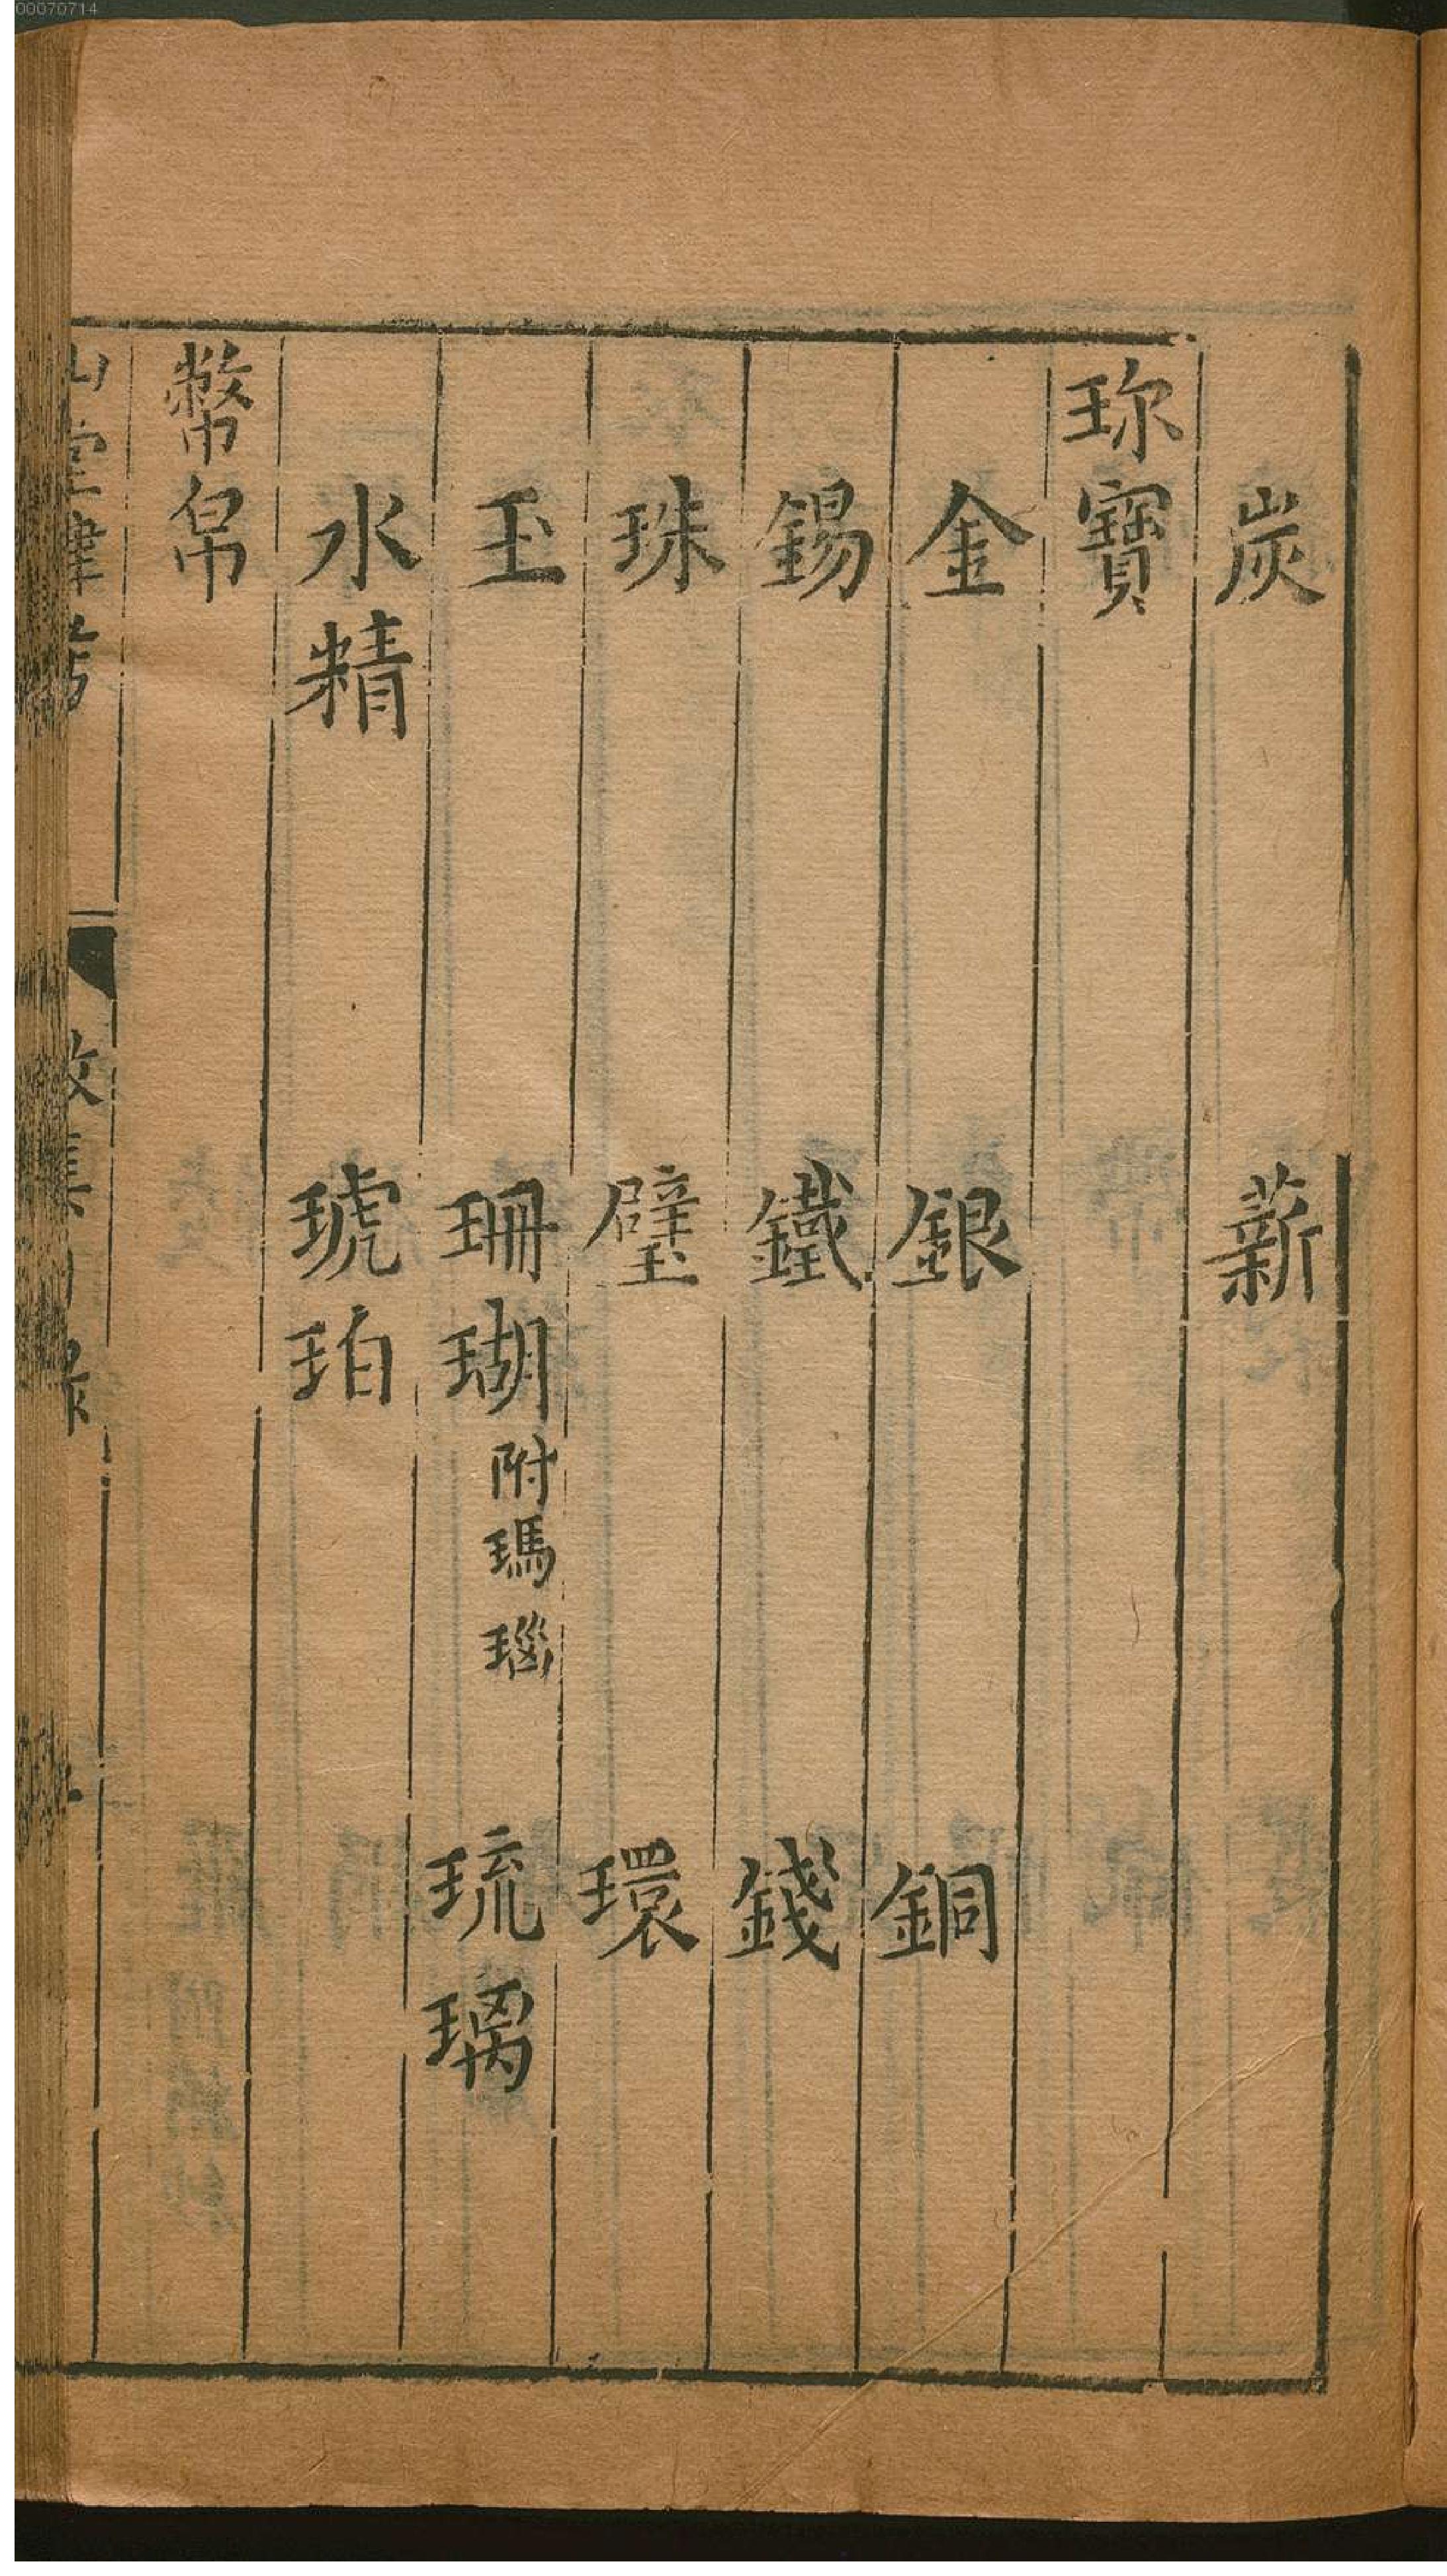 炭 薪
珎寳
金 銀 銅
錫 鐵 錢
珠 璧 環
玉 珊瑚附瑪瑙 琉璃
水精 琥珀
幣帛
00070714